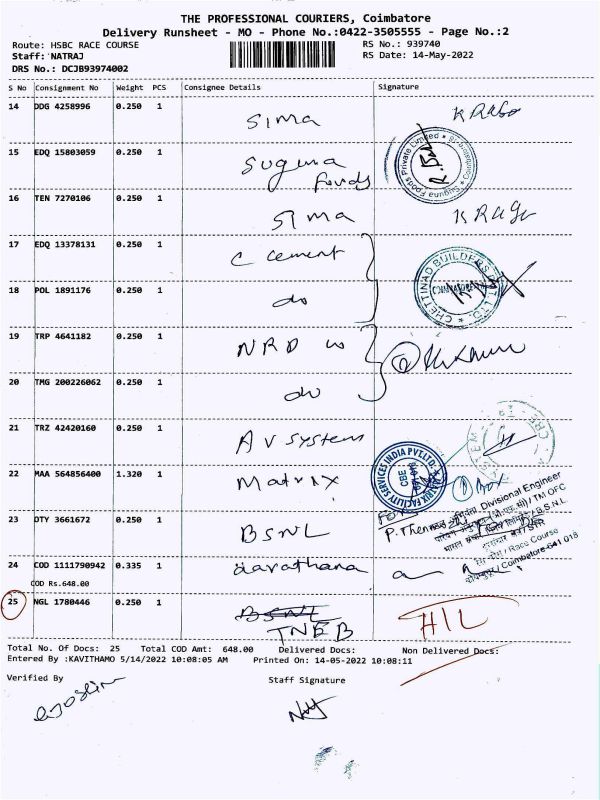 THE PROFESSIONAL COURIERS, Coimbatore
Delivery Runsheet - MO - Phone No.:0422-3505555 - Page No.:2
Route: HSBC RACE COURSE RS No.: 939740
Staff: NATRAJ RS Date: 14-May-2022
DRS No.: DCJB93974002
S No Consignment No Weight PCS Consignee Details Signature
14 DDG 4258996 0.250 1 Sima
15 EDQ 15803059 0.250 1 Suguna Foods
16 TEN 7270106 0.250 1 Sima
17 EDQ 13378131 0.250 1 C cement
18 POL 1891176 0.250 1 do
CHETTINAD BUILDERS PVT LTD.
19 TRP 4641182 0.250 1 NRD
20 TMG 200226062 0.250 1 do
21 TRZ 42420160 0.250 1 AV Systems
22 MAA 564856400 1.320 1 Matrix
FACILITY SERVICES INDIA PVT.LTD.
CBE
23 DTY 3661672 0.250 1 BSNL
For
Divisional Engineer
Race Course
Coimbatore-641 018
24 COD 1111790942 0.335 1 aarathana
COD Rs.648.00
25 NGL 1780446 0.250 1 BSNL HIL
TNEB
Total No. Of Docs: 25 Total COD Amt: 648.00 Delivered Docs: Non Delivered Docs:
Entered By :KAVITHAMO 5/14/2022 10:08:05 AM Printed On: 14-05-2022 10:08:11
Verified By Staff Signature